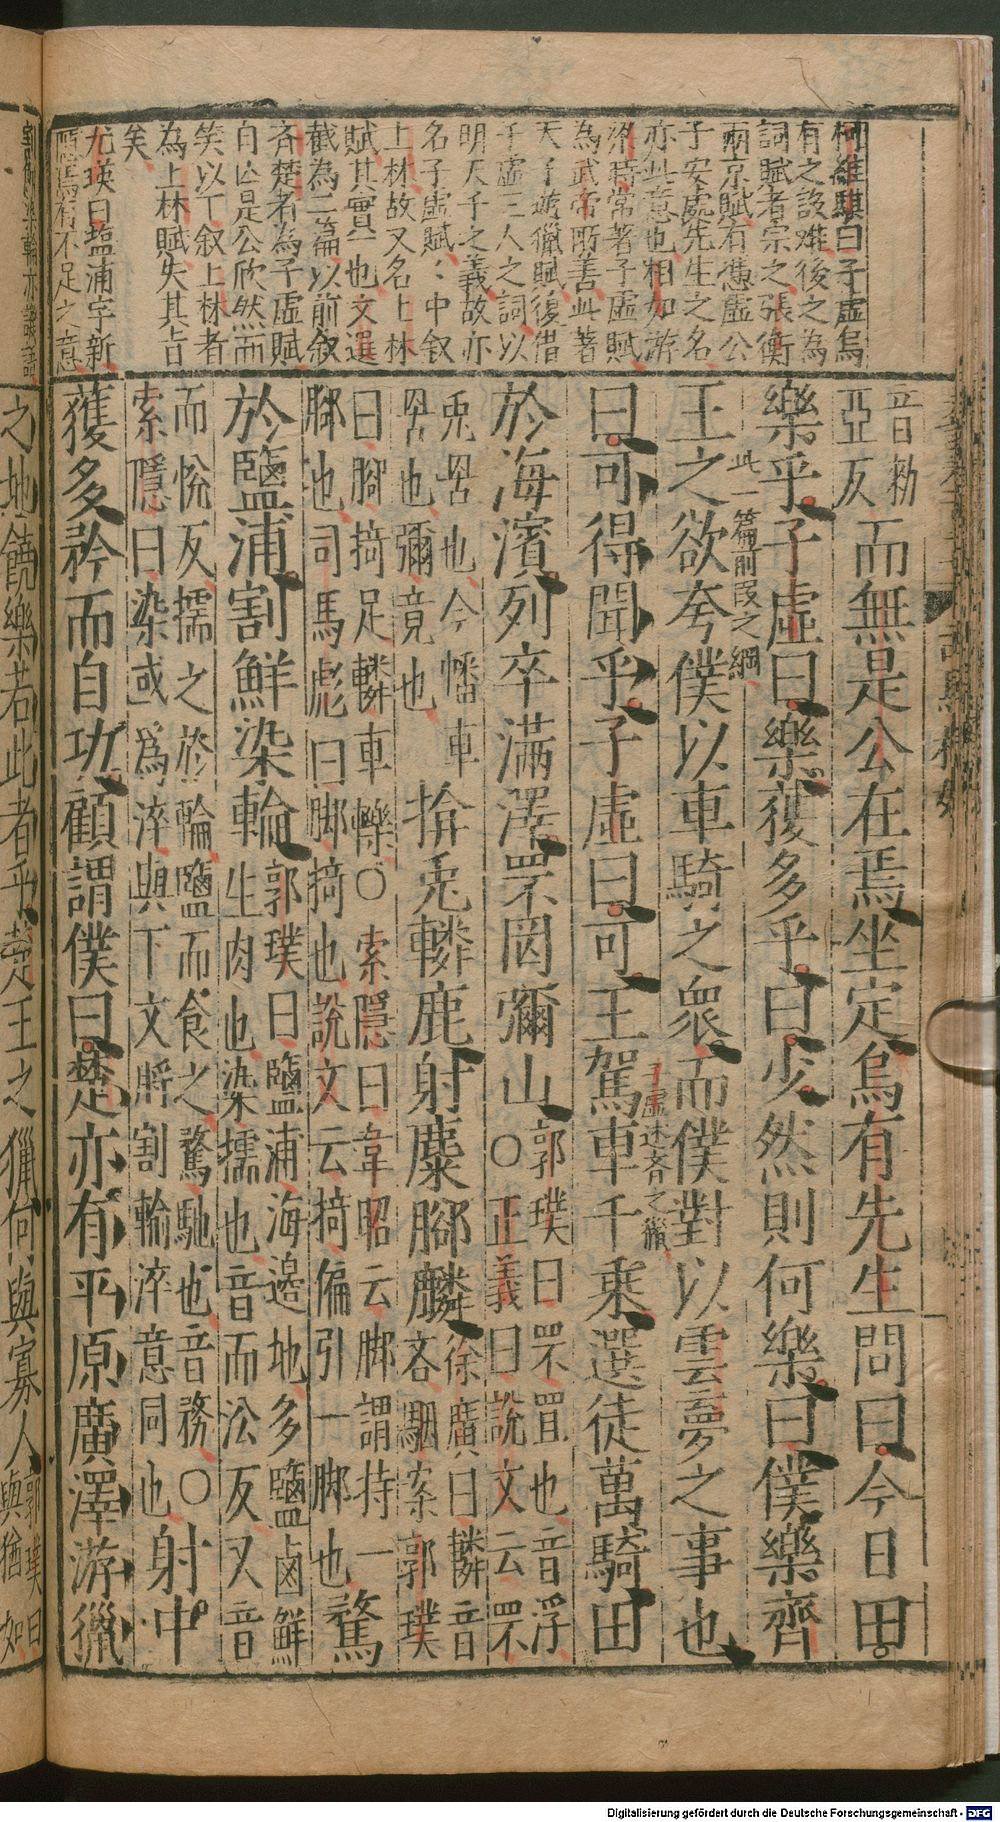 柯維騏曰子虛烏
有之設難後之為
詞賦者宗之張衡
兩京賦有憑虛公
子安處先生之名
亦此意也相如游
梁時常著子虛賦
為武帝所善此著
天子遊獵賦復借
子虛三人之詞以
明天子之義故亦
名子虛賦賦中叙
上林故又名上林
賦其實一也文選
截為二篇以前叙
齊楚者為子虛賦
自亡是公欣然而
笑以下叙上林者
為上林賦失其旨
矣
尤瑛曰塩浦字新
音勑
亞反
而無是公在焉坐定烏有先生問曰今日田
樂乎子虛曰樂獲多乎曰少然則何樂曰僕樂齊
此一篇前段之綱
王之欲夸僕以車騎之衆而僕對以雲夢之事也
子虛述齊之獵
曰可得聞乎子虛曰可王駕車千乘選徒萬騎田
於海濱列卒滿澤罘罔彌山
郭璞曰罘罝也音浮
○正義曰說文云罘
兎罟也今幡車
罟也彌竟也
揜兎轔鹿射麋腳麟
徐廣曰轔音
吝駰案郭璞
曰腳掎足轔車轢○索隱曰韋昭云脚謂持一
脚也司馬彪曰脚掎也說文云掎偏引一脚也
騖
於鹽浦割鮮染輪
郭璞曰鹽浦海邊地多鹽鹵鮮
生肉也染擩也音而沇反又音
而悅反擩之於輪鹽而食之騖馳也音務○
索隱曰染或爲淬與下文脟割輪淬意同也
射中
獲多矜而自功顧謂僕曰楚亦有平原廣澤游獵
之地饒樂若此者乎楚王之獵何與寡人
郭璞曰
與猶如
Digitalisierung gefördert durch die Deutsche Forschungsgemeinschaft - DFG